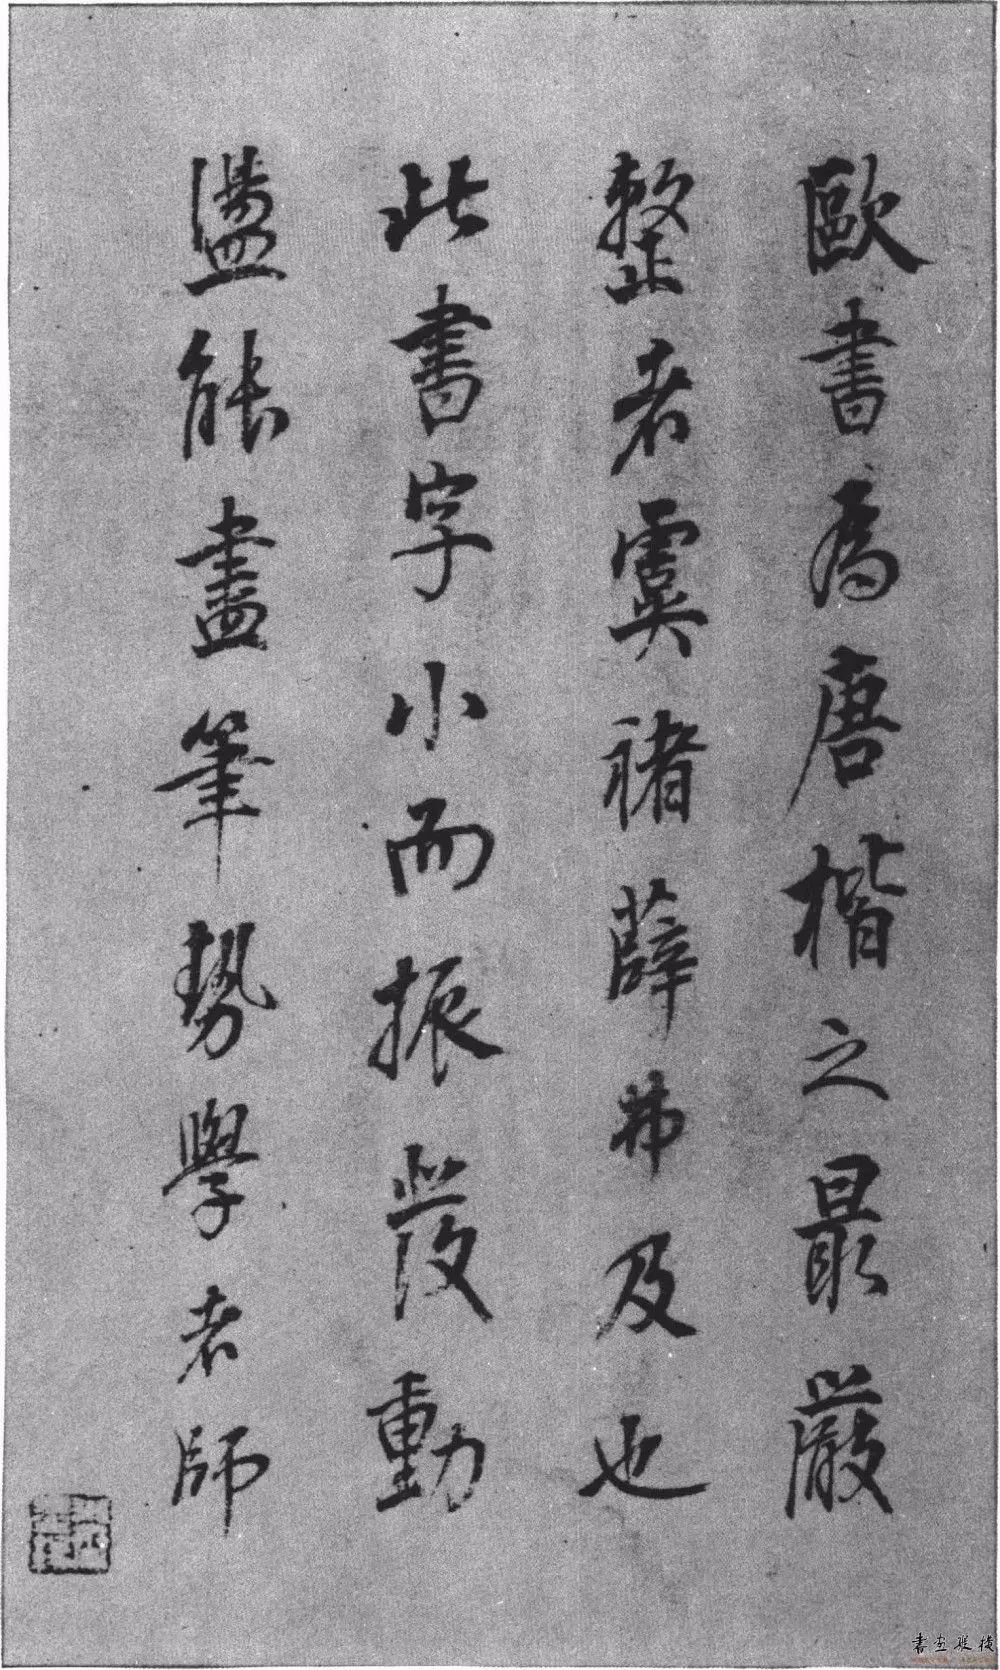 歐書為唐楷之最嚴
整者虞褚薛弗及也
此書字小而振發動
盪能盡筆勢學者師
書画縱橫